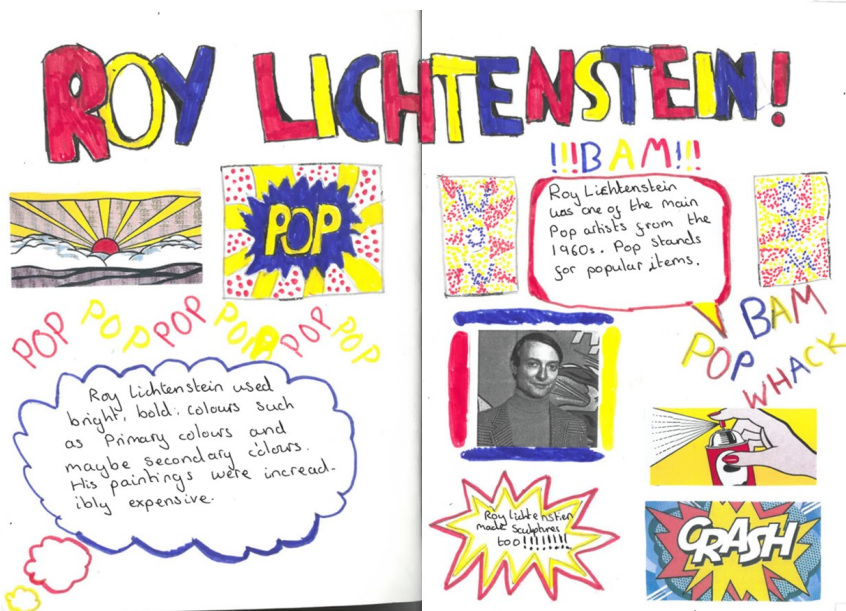 ROY LICHTENSTEIN!
POP
POP POP POP POP POP POP
Roy Lichtenstein used
bright, bold, colours such
as Primary colours and
maybe secondary colours.
His paintings were incread-
ibly expensive.
!!!BAM!!!
Roy Lichtenstein
was one of the main
Pop artists from the
1960s. Pop stands
for popular items.
BAM
POP
WHACK
Roy Lichtenstien
made Sculptures
too!!!!!!!!!
CRASH